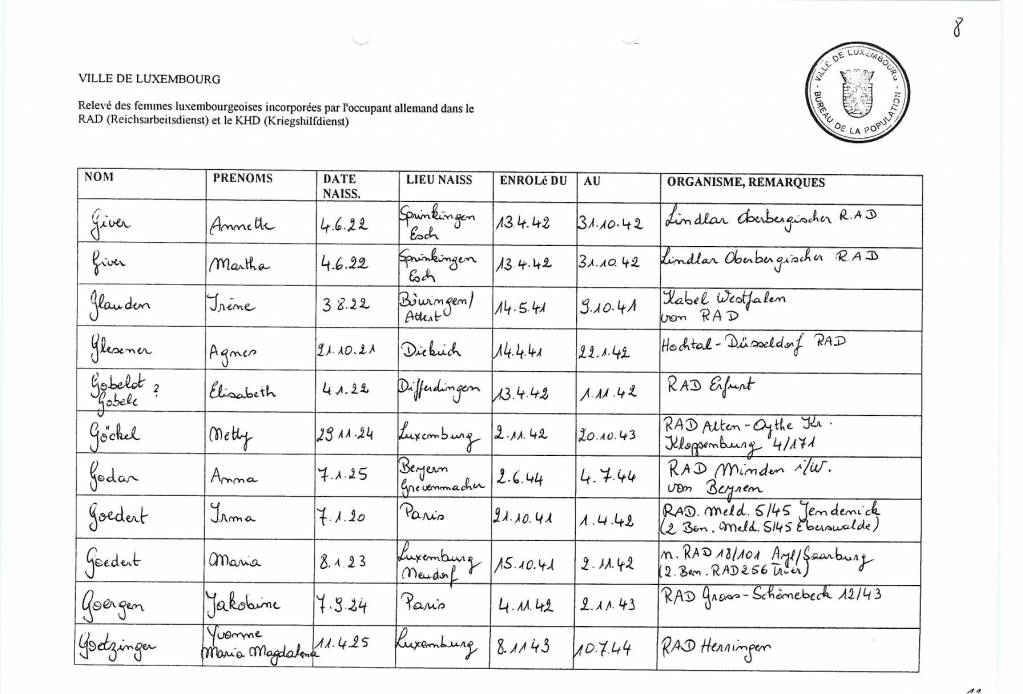 8
VILLE DE LUXEMBOURG
BUREAU DE LA POPULATION
VILLE DE LUXEMBOURG
Relevé des femmes luxembourgeoises incorporées par l'occupant allemand dans le
RAD (Reichsarbeitsdienst) et le KHD (Kriegshilfdienst)
NOM PRENOMS DATE NAISS. LIEU NAISS ENROLé DU AU ORGANISME, REMARQUES
Giver Annette 4.6.22 Sprinkingen Esch 13.4.42 31.10.42 Lindlar Oberbergischer R.A.D
Giver Martha 4.6.22 Sprinkingen Esch 13.4.42 31.10.42 Lindlar Oberbergischer R A D
Glauden Irène 3 8.22 Böwringen/ Attert 14.5.41 9.10.41 Kabel Westfalen von RAD
Glesener Agnes 21.10.21 Diekirch 14.4.41 22.1.42 Hochtal-Düsseldorf RAD
Gobelot ? Gobele Elisabeth 4.1.22 Differdingen 13.4.42 1.11.42 RAD Erfurt
Göckel Metty 29 11.24 Luxemburg 2.11.42 20.10.43 RAD Alten-Oythe Kr. Kloppenburg 4/171
Godar Anna 7.1.25 Beyern Grevenmacher 2.6.44 4.7.44 RAD Minden i/W. von Beyren
Goedert Irma 7.1.20 Paris 21.10.41 1.4.42 RAD. Meld. 5/45 Jendenick (2 Ben. Meld. 5/45 Eberswalde)
Goedert Maria 8.1.23 Luxemburg Neudorf 15.10.41 2.11.42 n. RAD 18/101 Ayl/Saarburg (2. Ben. RAD 256 Trier)
Goergen Jakobine 7.9.24 Paris 4.11.42 2.11.43 RAD Gross-Schönebeck 12/43
Goetzinger Yvonne Maria Magdalena 11.4.25 Luxemburg 8.1143 10.7.44 RAD Herringen
11